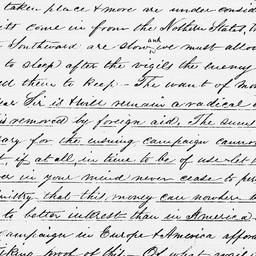 taken place & more are under consid
its come in from the Northern States,
Southward are slow, and we must allow
to sleep after the vigils the enemy
ed them to keep— The want of mon
ear Sir is & will remain a radical
is removed by foreign aid. The sums
ary for the ensuing campaign cannot
t, if at all in time to be of use— let
er in your mind never cease to per
inistry that this money can nowhere
to better interest than in America
Campaign in Europe & America affor
king proof of this— Of what avail